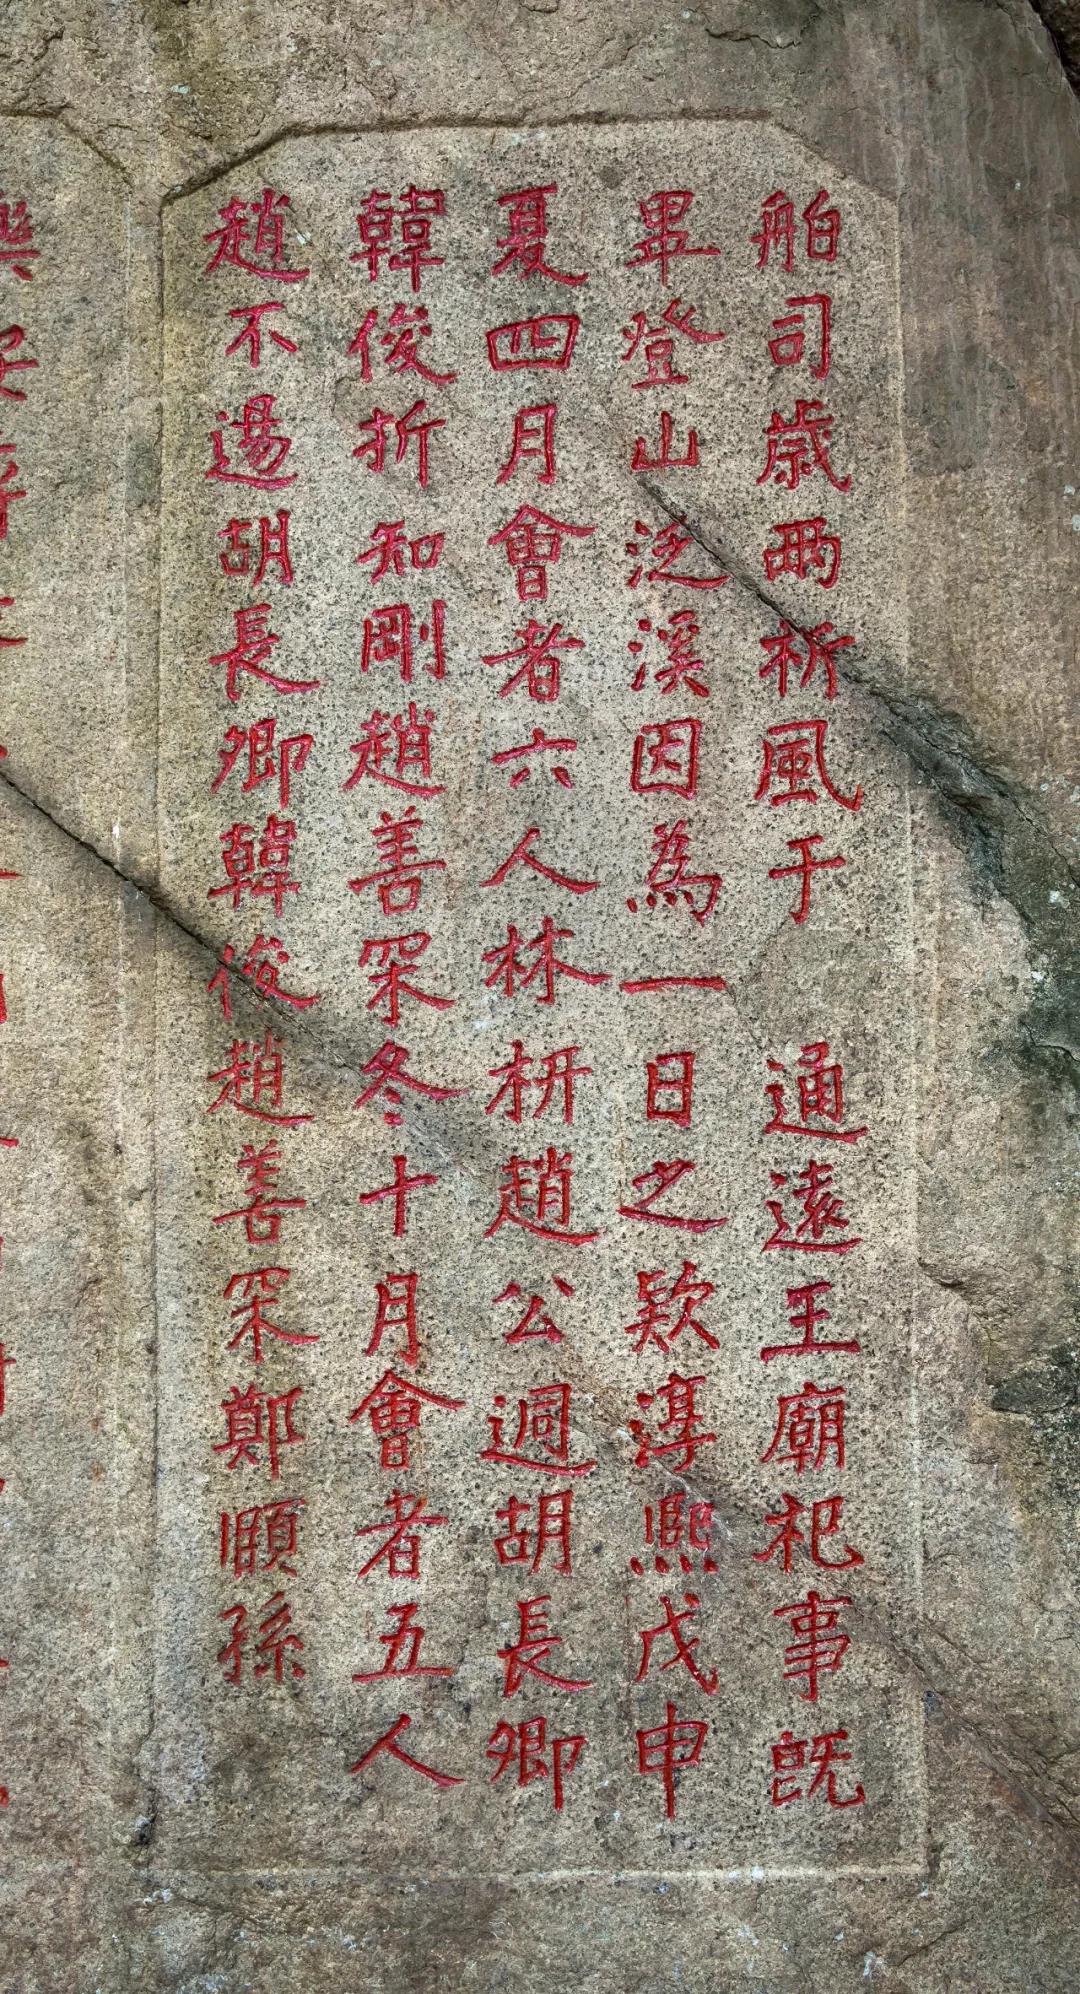 舶司歲兩祈風于　通遠王廟祀事既
畢登山泛溪因為一日之欵淳熙戊申
夏四月會者六人林枅趙公迥胡長卿
韓俊折知剛趙善罙冬十月會者五人
趙不逷胡長卿韓俊趙善罙鄭頤孫